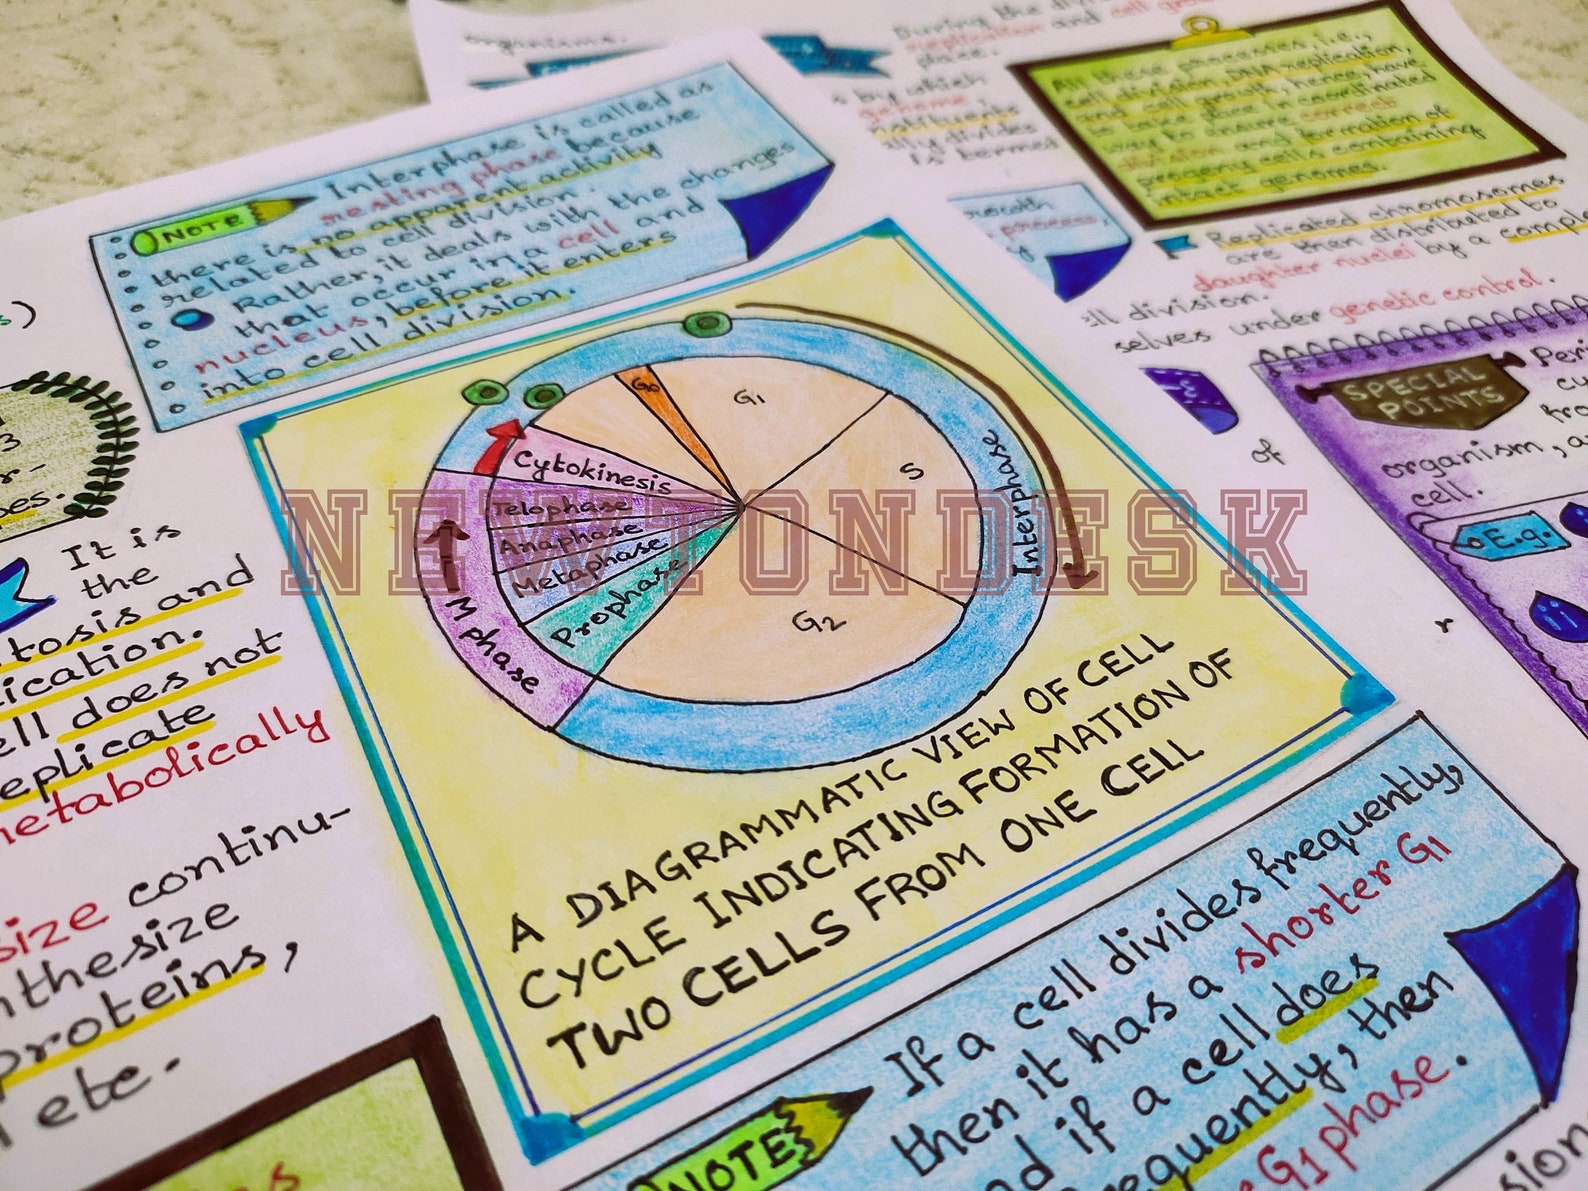 organisms.
During the div
replication and cell grow
place.
s by which
genome,
nstituents
lly divides
is termed
All these processes, i.e.,
cell division, DNA replication,
and cell growth, hence, have
to take place in coordinated
way to ensure correct
division and formation of
progeny cells containing
intact genomes.
rowth
process,
y
Replicated chromosomes
are then distributed to
daughter nuclei by a comple
ll division.
selves under genetic control.
SPECIAL
POINTS
Peri
cy
fro
organism, a
cell.
E.g.
of
r
NOTE
Interphase is called as
resting phase because
there is no apparent activity
related to cell division.
Rather, it deals with the changes
that occur in a cell and
nucleus, before it enters
into cell division.
s)
3
r-
es.
G0
G1
S
G2
Cytokinesis
Telophase
Anaphase
Metaphase
Prophase
M phase
Interphase
NEWTONDESK
A DIAGRAMMATIC VIEW OF CELL
CYCLE INDICATING FORMATION OF
TWO CELLS FROM ONE CELL
It is
the
tosis and
ication.
ell does not
eplicate
metabolically
size continu-
nthesize
proteins,
etc.
NOTE
If a cell divides frequently,
then it has a shorter G1
nd if a cell does
requently, then
G1 phase.
sion